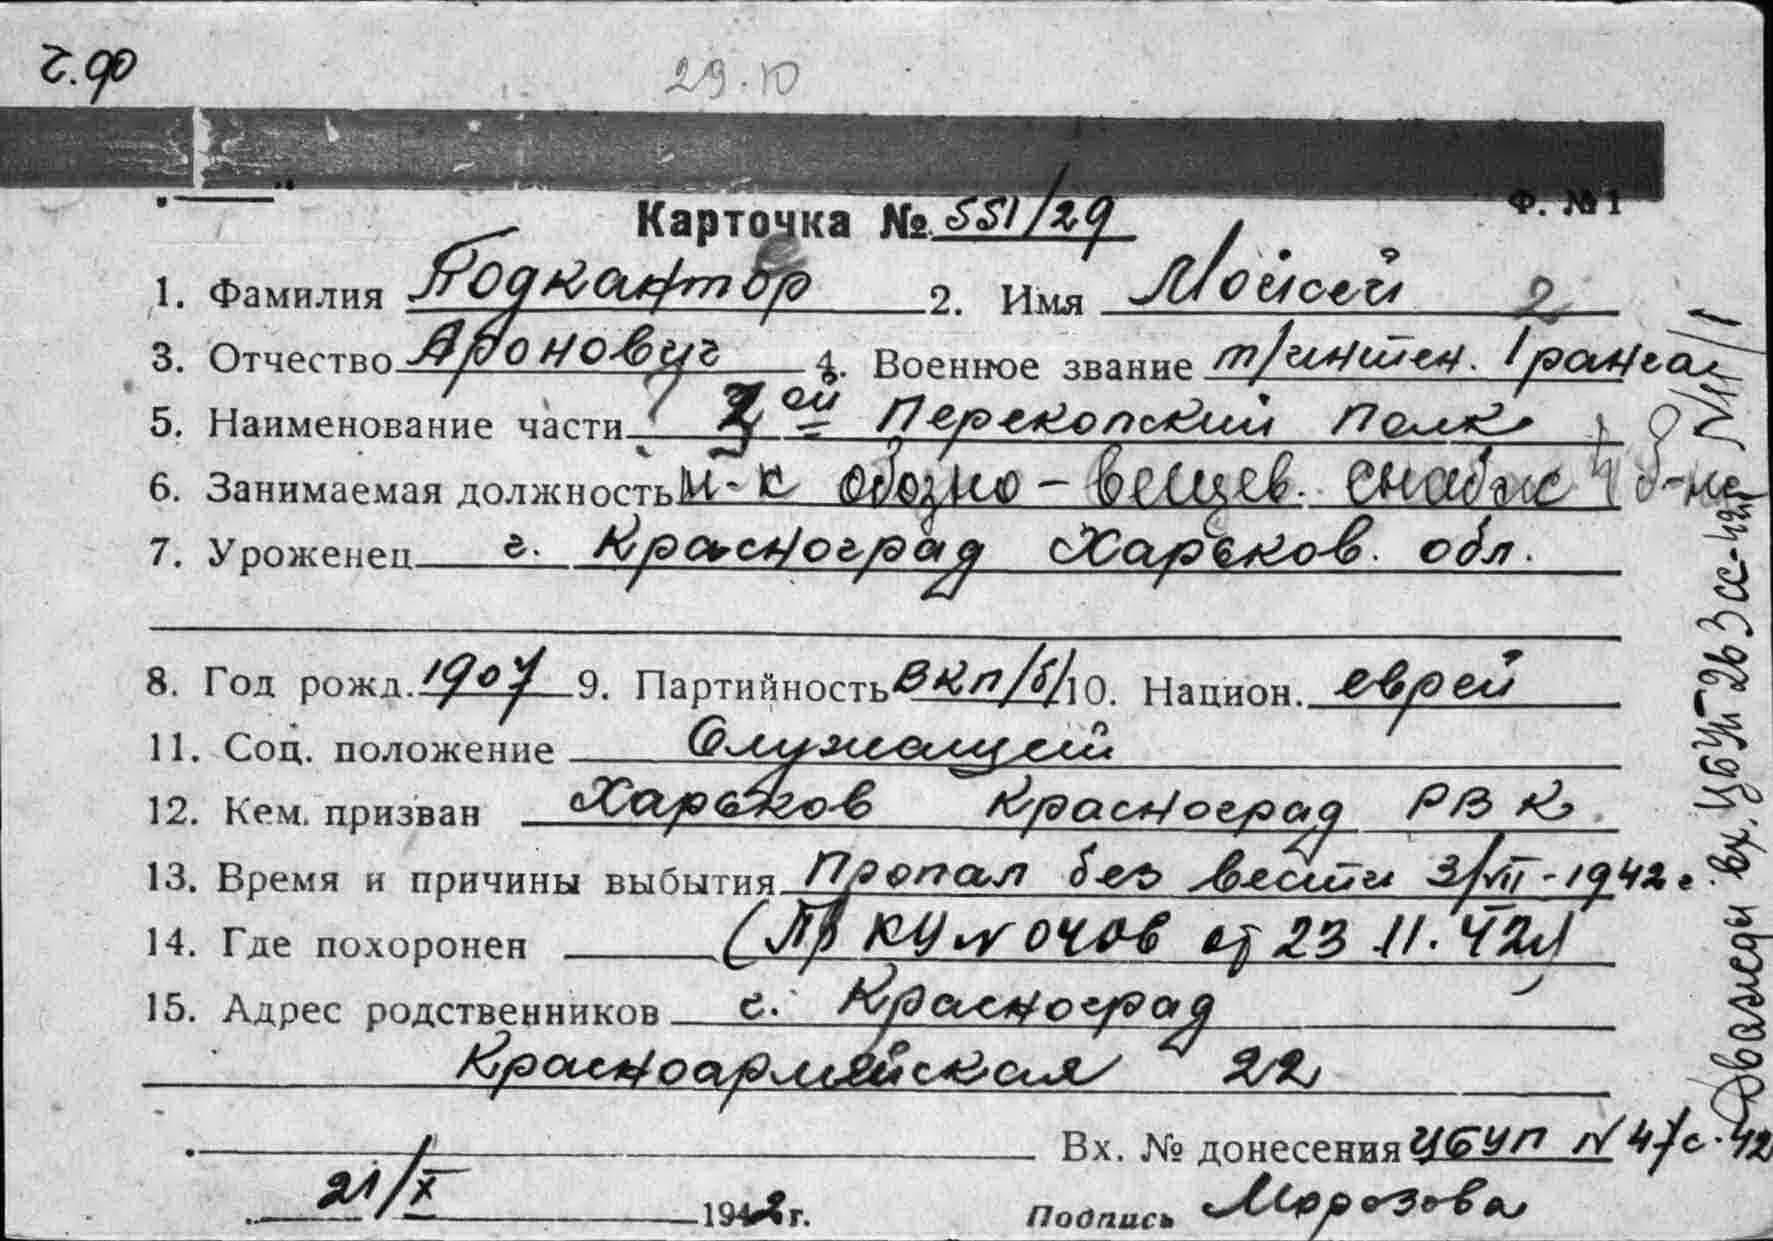 г.ф
29.10
Ф. №1
Карточка № 551/29
1. Фамилия Подкантор 2. Имя Мойсей 2
3. Отчество Аронович 4. Военное звание т/интен. 1 ранга
5. Наименование части 2ой Перекопский полк
6. Занимаемая должность н-к обозно-вещев. снабж
7. Уроженец г. Красноград Харьков. обл.
8. Год рожд. 1907 9. Партийность ВКП/б/ 10. Национ. еврей
11. Соц. положение Служащий
12. Кем призван Харьков Красноград РВК
13. Время и причины выбытия Пропал без вести 3/VII-1942г.
14. Где похоронен (Пр КУ N 0406 от 23.11.42г)
15. Адрес родственников г. Красноград
Красноармейская 22
Вх. № донесения ЦБУП N 47с-42
21/X 1942 г. Подпись Морозова
вх. ЦБУП 263сс-42г